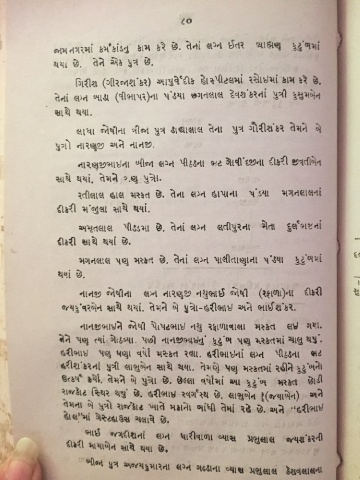 ૮૦
જામનગરમાં કર્મકાંડનુ કામ કરે છે. તેનાં લગ્ન ઈતર બ્રાહ્મણ કુટુંબમાં
થયા છે. તેને એક પુત્ર છે.
ગિરીશ (ગીરજાશંકર) આયુર્વેદીક હોસ્પીટલમાં રસોઇમાં કામ કરે છે.
તેનાં લગ્ન બાડા (વીભાપર)ના પંડયા છગનલાલ દેવશંકરનાં પુત્રી કુસુમબેન
સાથે થયા.
લાધા જોષીના ત્રીજા પુત્ર ડાહ્યાલાલ તેના પુત્ર ગૌરીશંકર તેમને બે
પુત્રો નારણજી અને નાનજી.
નારણજીભાઇના બીજા લગ્ન પીઠડના ભટ ગોવીંદજીના દીકરી જીવતીબેન
સાથે થયાં. તેમને ત્રણ પુત્રો.
રતીલાલ હાલ મસ્કત છે. તેના લગ્ન હાપાના પંડયા મગનલાલનાં
દીકરી મંજુલા સાથે થયાં.
અમૃતલાલ પીઠડમાં છે. તેનાં લગ્ન લતીપુરના મેતા દુર્લભજીનાં
દીકરી સાથે થયાં છે.
મગનલાલ પણ મસ્કત છે. તેનાં લગ્ન પાલીતાણાના પંડયા કુટુંબમાં
થયાં છે.
નાનજી જોષીના લગ્ન નારણજી નથુભાઈ જોષી (રફાળા)ના દીકરી
જયકુંવરબેન સાથે થયાં. તેમને બે પુત્રો-હરીભાઈ અને ભાઈશંકર.
નાનજીભાઈને જોષી પોપટભાઈ નથુ રફાળાવાળા મસ્કત લઈ ગયા.
એને પણ ત્યાં ગોઠવ્યા. પછી નાનજીભાઈનું કુટુંબ પણ મસ્કતમાં ચાલુ થયું.
હરીભાઈ પણ ઘણા વર્ષો મસ્કત રહ્યા. હરીભાઈનાં લગ્ન પીઠડના ભટ
હરીશંકરનાં પુત્રી લાભુબેન સાથે થયા. તેમણે પણ મસ્કતમાં રહીને કુટુંબનો
ઉત્કર્ષ કર્યો. તેમને બે પુત્રો છે. છેલ્લા વર્ષોમાં આ કુટુંબ મસ્કત છોડી
રાજકોટ સ્થિર થયું છે. હરીભાઈ સ્વર્ગસ્થ છે. લાભુબેન (જયાબેન) અને
તેમના બે પુત્રો રાજકોટ ખાતે મકાનો બાંધી તેમાં રહે છે. અને "હરીભાઈ
હોલ"માં ગેસ્ટહાઉસ ચલાવે છે.
ભાઈ જગદીશનાં લગ્ન ધારીવાળા વ્યાસ પ્રભુલાલ જયશંકરની
દીકરી માયાબેન સાથે થયા છે.
બીજા પુત્ર અજયકુમારના લગ્ન ગઢડાના વ્યાસ પ્રભુલાલ કેશવલાલના